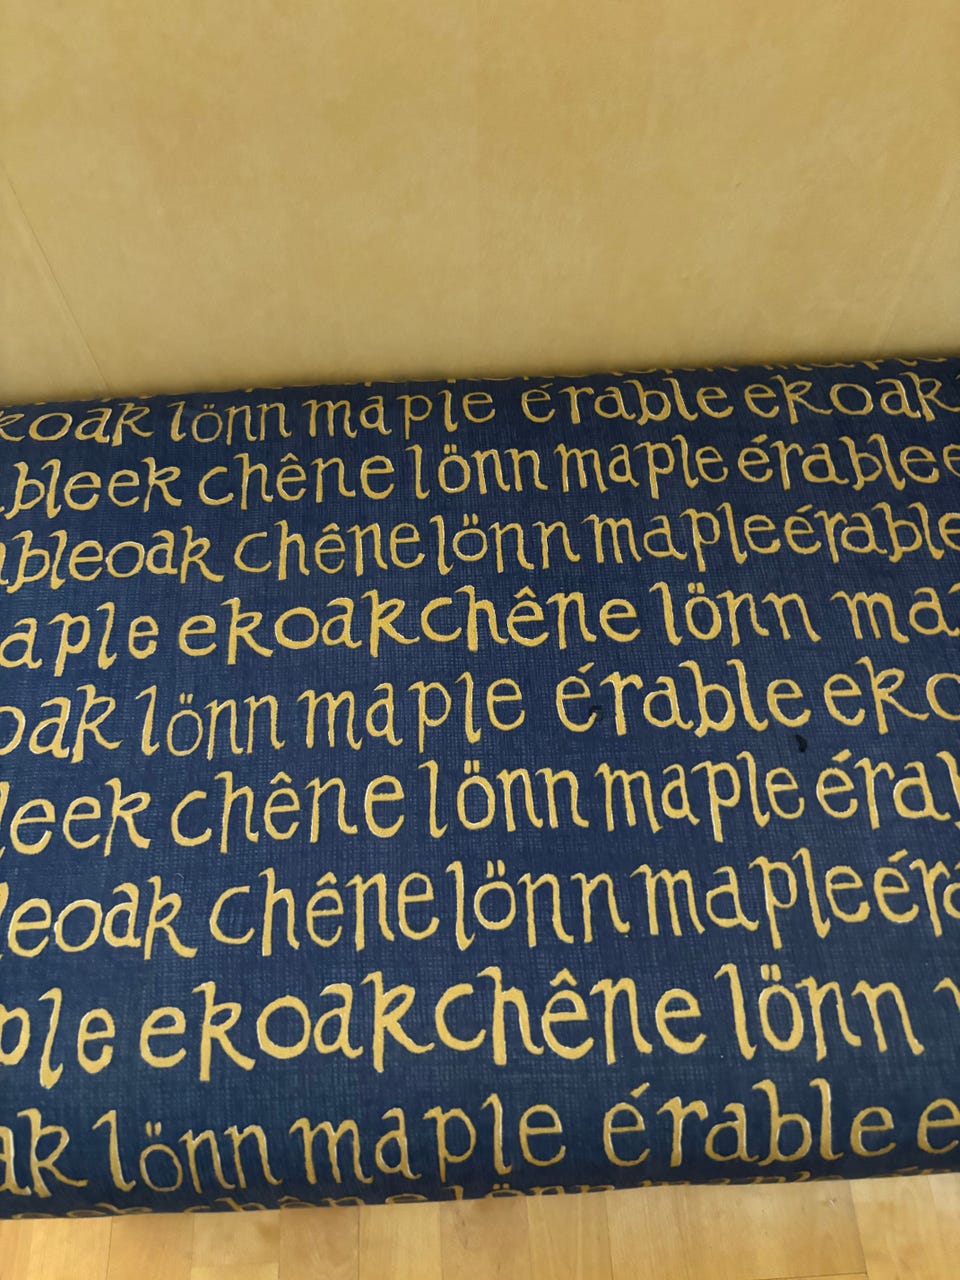 koak lönn maple érable ekoak
bleek chêne lönn maple érablee
ableoak chêne lönn mapleérable
aple ekoakchêne lönn ma
oak lönn maple érable eko
leek chêne lönn maple érab
leoak chêne lönn mapleéra
ple ekoakchêne lönn
ak lönn maple érable e
chêne lönn